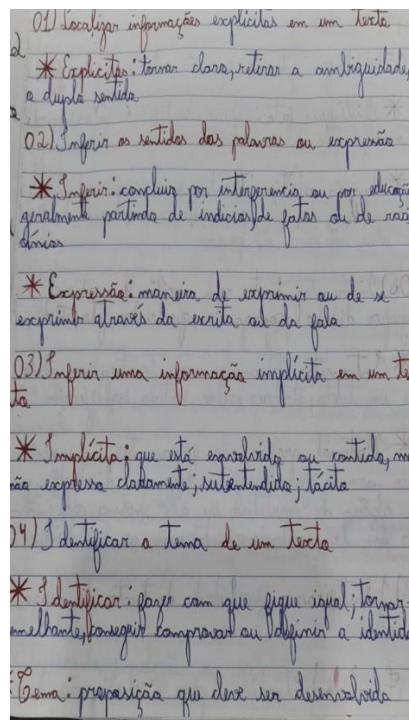 01) Localizar informações explícitas em um texto
* Explícitas: tornar claro, retirar a ambiguidade,
a duplo sentido
02) Inferir os sentidos das palavras ou expressão
* Inferir: concluir por interferencia ou por educação
geralmente partindo de indicios, de fatos ou de rac
cínios
* Expressão: maneira de exprimir ou de se
exprimir através da escrita ou da fala
03) Inferir uma informação implícita em um te
to
* Implícita: que está envolvido ou contido, m
não expressa claramente; subtentendida; tácita
04) Identificar o tema de um texto
* Identificar: fazer com que fique igual; tornar-
emelhante, conseguir comprovar ou definir a identida
Tema: proposição que deve ser desenvolvida